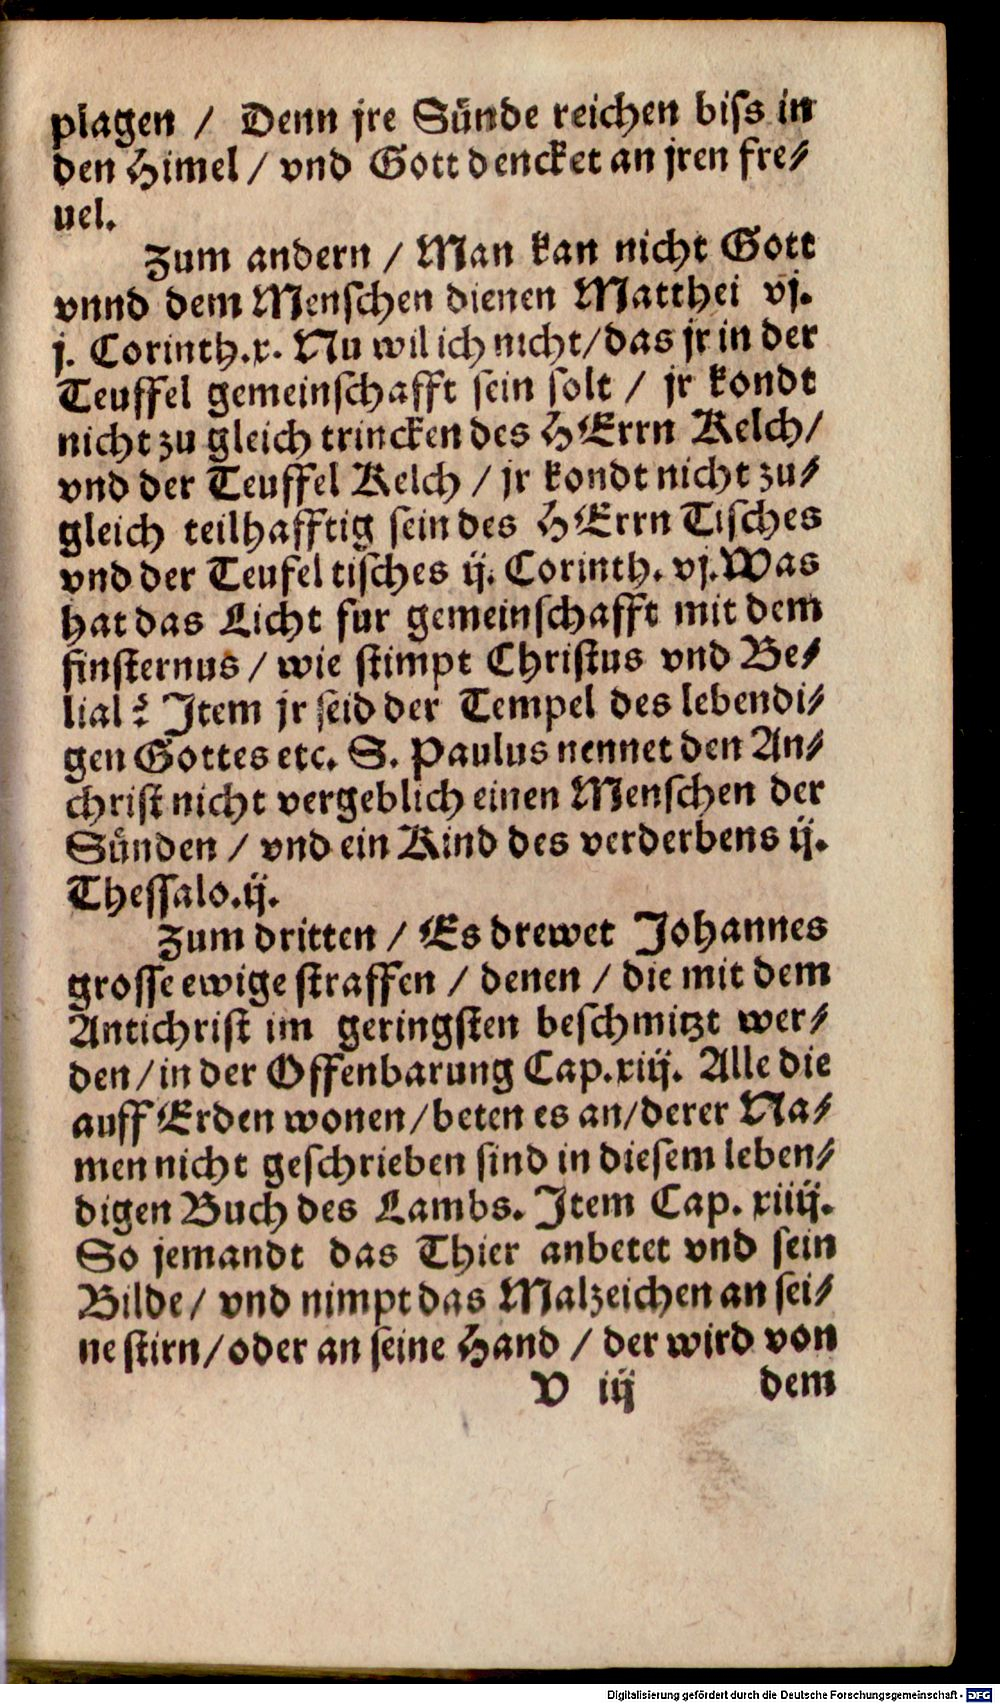 plagen / Denn jre Sünde reichen biſs in
den Himel / vnd Gott dencket an jren fre⸗
uel.
Zum andern / Man kan nicht Gott
vnnd dem Menſchen dienen Matthei vj.
j. Corinth.x. Nu wil ich nicht/das jr in der
Teuffel gemeinſchafft ſein ſolt / jr kondt
nicht zu gleich trincken des HErrn Kelch/
vnd der Teuffel Kelch / jr kondt nicht zu⸗
gleich teilhafftig ſein des HErrn Tiſches
vnd der Teufel tiſches ij. Corinth. vj. Was
hat das Licht fur gemeinſchafft mit dem
finſternus / wie ſtimpt Chriſtus vnd Be⸗
lial? Jtem jr ſeid der Tempel des lebendi⸗
gen Gottes etc. S. Paulus nennet den An⸗
chriſt nicht vergeblich einen Menſchen der
Sünden / vnd ein Kind des verderbens ij.
Theſſalo.ij.
Zum dritten / Es drewet Johannes
groſſe ewige ſtraffen / denen / die mit dem
Antichriſt im geringſten beſchmitzt wer⸗
den/in der Offenbarung Cap.xiij. Alle die
auff Erden wonen/beten es an/derer Na⸗
men nicht geſchrieben ſind in dieſem leben⸗
digen Buch des Lambs. Jtem Cap. xiiij.
So jemandt das Thier anbetet vnd ſein
Bilde/ vnd nimpt das Malzeichen an ſei⸗
ne ſtirn/oder an ſeine Hand / der wird von
V iij dem
Digitalisierung gefördert durch die Deutsche Forschungsgemeinschaft - DFG